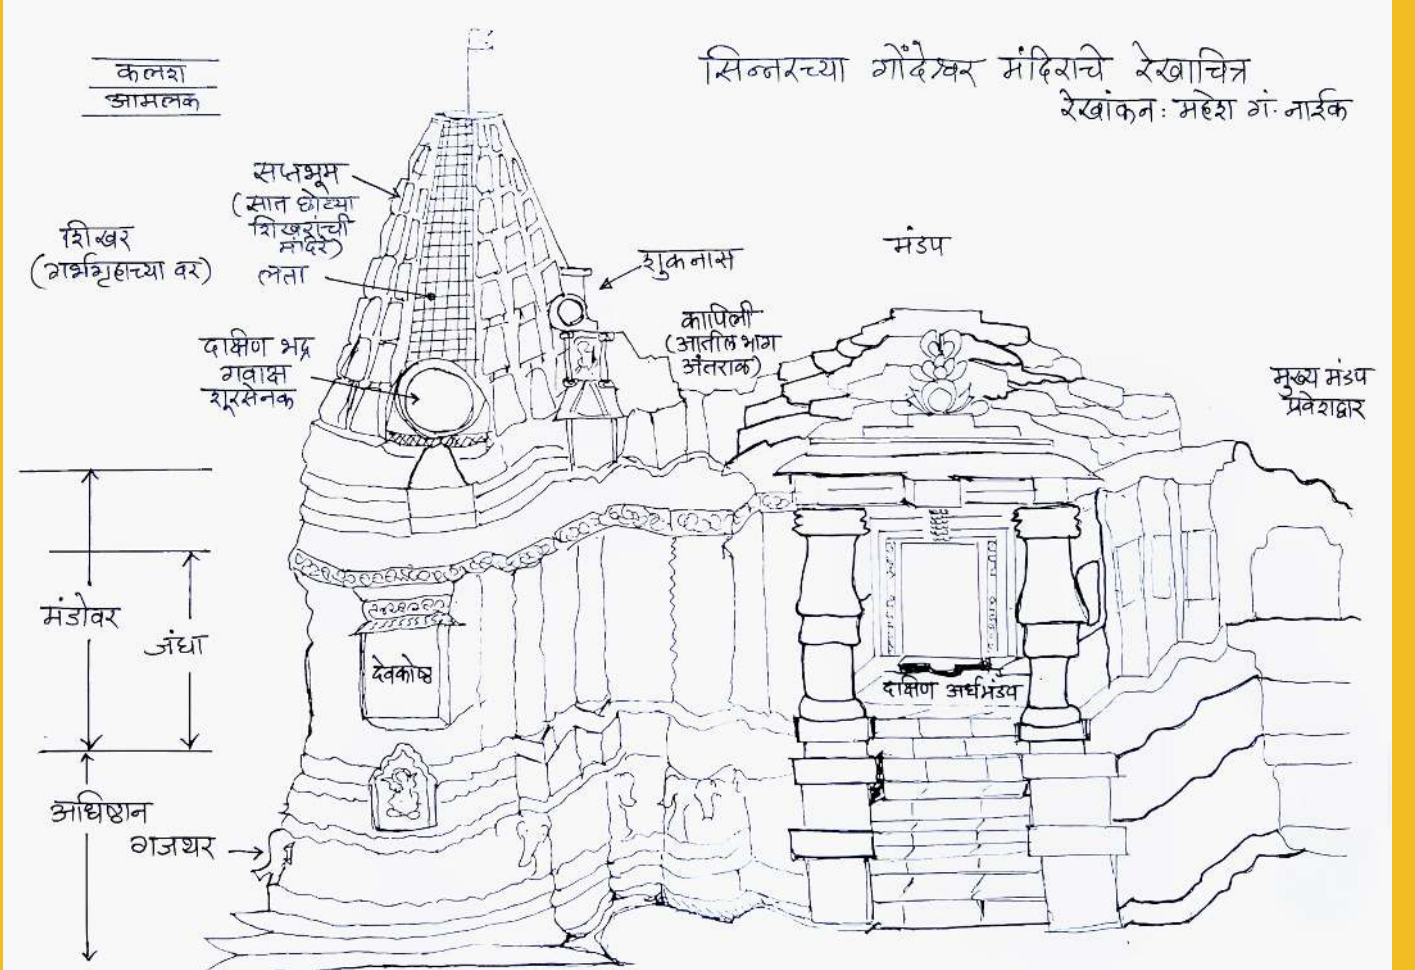 सिन्नरच्या गोंदेश्वर मंदिराचे रेखाचित्र
रेखांकन: महेश गं. नाईक
कलश
आमलक
सप्तभूम
(सात छोट्या
शिखरांची
मंदिरे)
शिखर
(गर्भगृहाच्या वर)
लता
शुकनास
मंडप
कापिली
(आतील भाग
अंतराळ)
दक्षिण भद्र
गवाक्ष
शूरसेनक
मुख्य मंडप
प्रवेशद्वार
मंडोवर
जंघा
देवकोष्ठ
दक्षिण अर्धमंडप
अधिष्ठान
गजथर